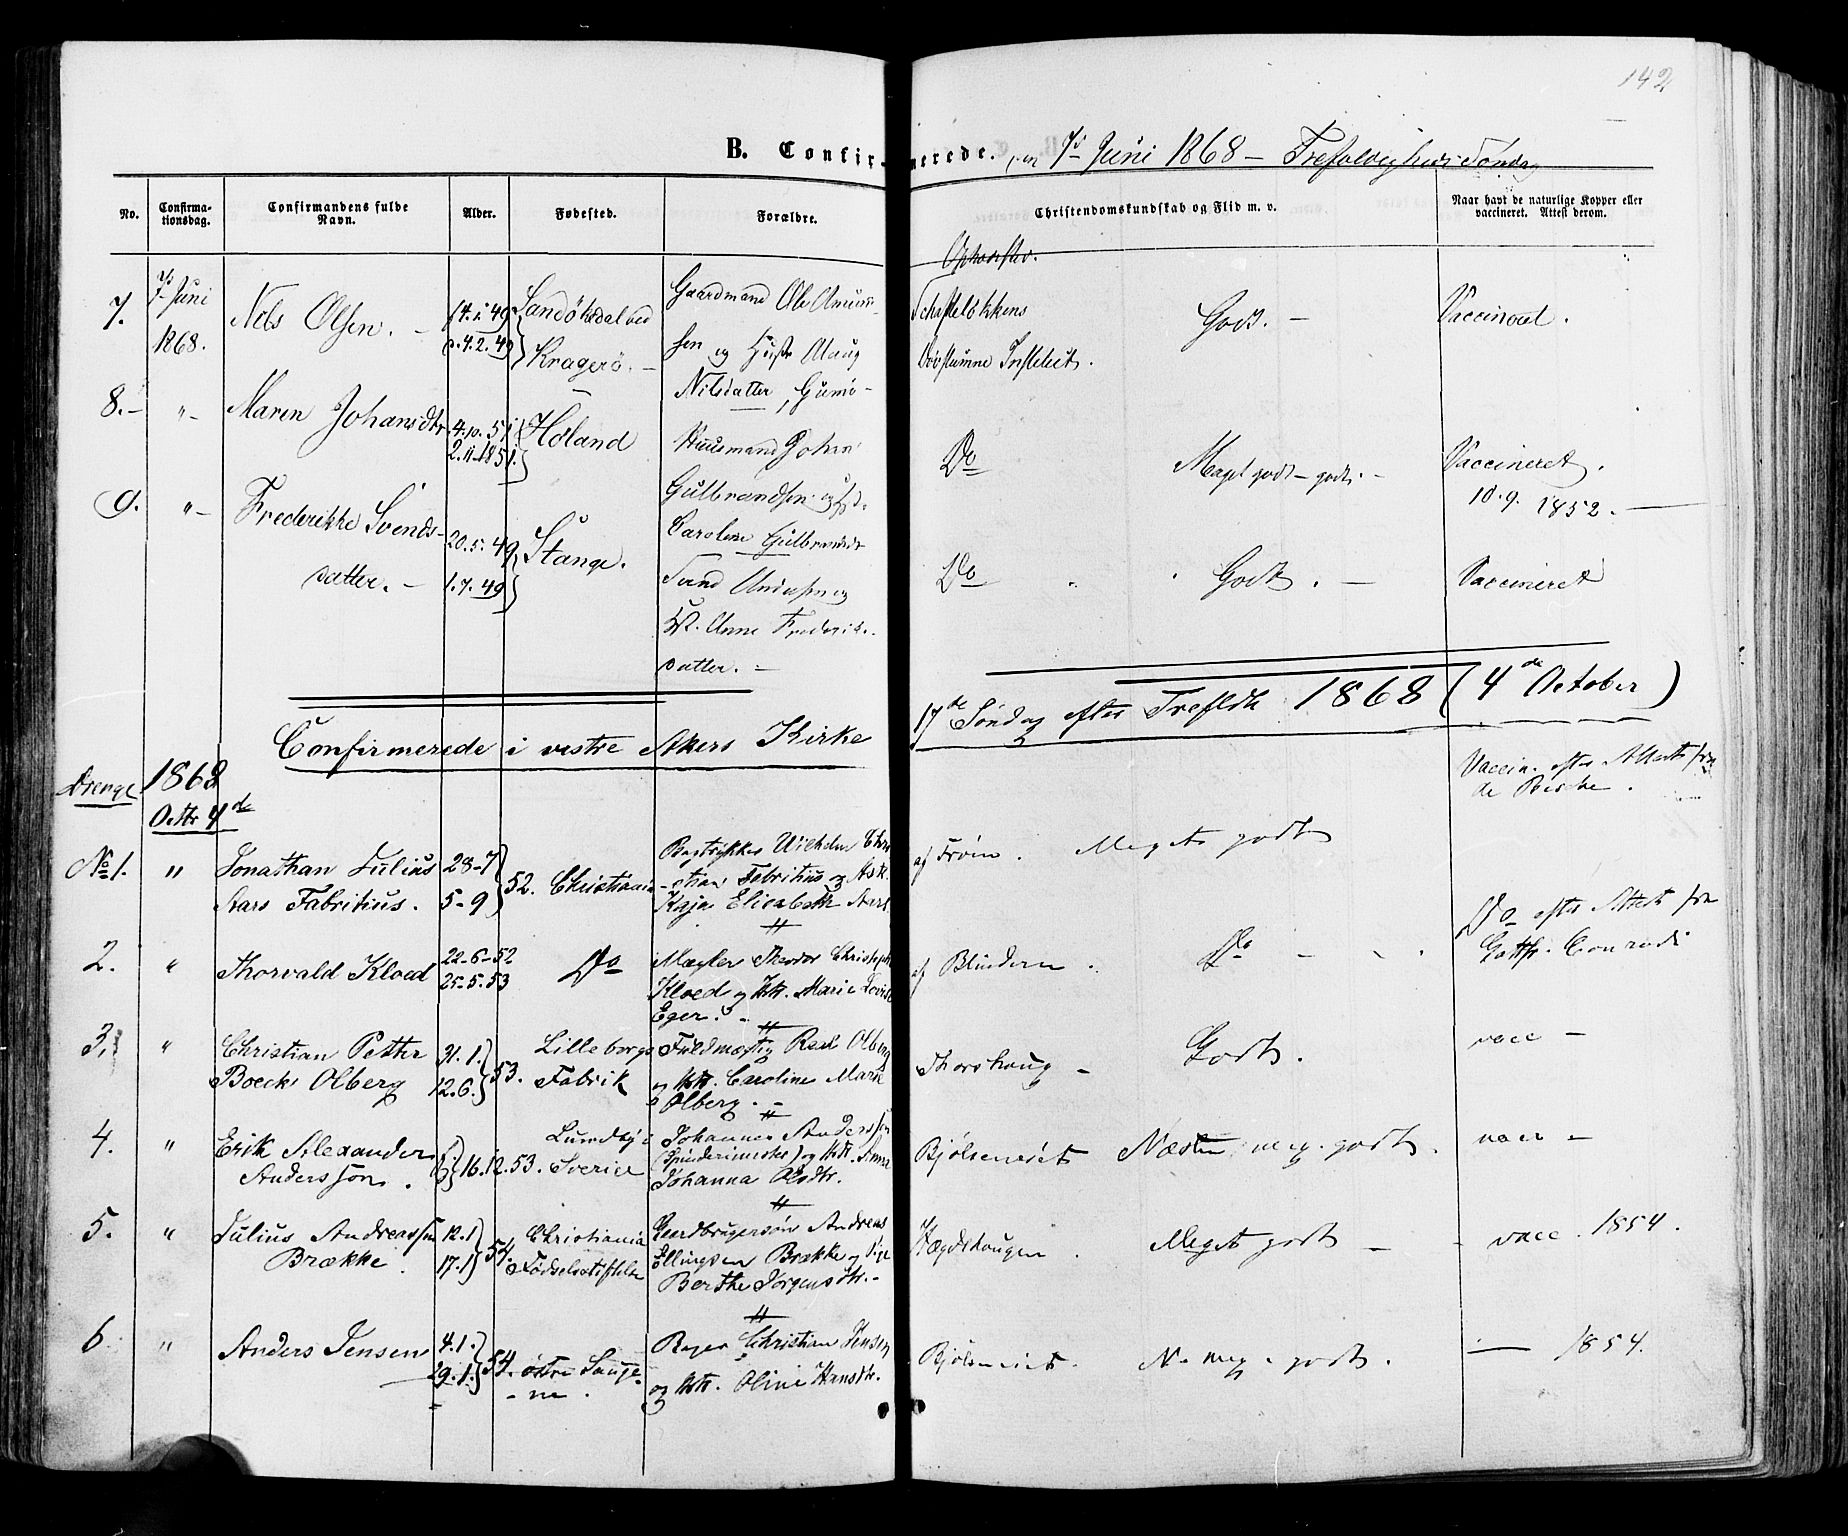 142
B. Confirmerede. 7d Juni 1868 – Trefoldigheds Søndag
No.
Confirmationsdag.
Confirmandens fulde Navn.
Alder.
Fødested.
Forældre.
Christendomskundskab og Flid m. v.
Naar havt de naturlige Kopper eller vaccineret. Attest derom.
Opholdssted.
7. 7d Juni 1868. Nels Olsen. –
14.1.49
d. 4.2.49
Sandøkedal ved Kragerø. –
Gaardmand Ole Amund-
sen og Hustr Maug
Nilsdatter, Gumø –
Døvstumme Institut.
Godt. –
Vaccineret.
8. – " – Maren Johansdtr
4.10.51
2.11.1851.
Høland
Huusmand Johan
Gulbrandsen og Hst.
Caroline Gulbrandsdr
Do
Meget godt – godt. –
Vaccineret.
10.9.1852. –
9. " – Frederikke Svends-
datter. –
20.5.49
1.7.49
Stange.
Svend Andersen og
Hst. Anne Frederiks-
datter. –
Do " Godt. –
Vaccineret
Confirmerede i vestre Akers Kirke
17de Søndag efter Trefldh 1868 (4de October)
Drenge 1868
Octbr 4de
No 1. " Jonathan Julius
Aars Fabritius.
28-7
5-9
52. Christiania
Bogtrykker Wilhelm Chri-
stian Fabritius og Hstr.
Kaja Elisabeth Aars.
af Frøen. Meget godt
Vaccin. efter Attest fra
de Besche.
2. " Thorvald Kloed
22-6-52
25-5-53
Do
Mægler Theodor Christoph
Kloed og Hstr. Marie Lovise
Eger.
af Blindern. Do – " .
Do efter Attest fra
Gottfr. Conradi
3. " Christian Petter
Boeck Olberg
31.1.
12.6.
53. Lilleborgs
Fabrik
Fuldmægtig Olberg
og Hstr. Caroline Marie
Olberg. –
Thorshaug – Godt.
vacc –
4. " Erik Alexander
Andersson.
16.12.53.
Lundby i
Sverige
Johannes Andersson
(Spinderimester) og Hstr. Anna
Johanna Olsdtr.
Bjølsenveiet Næsten meg. godt.
vacc –
5. " Julius Andreassen
Brække.
12.1
17.1
54. Christiania
Fødselsstiftelse
Gaardbrugersøn Andreas
Ellingsen Brække og Pige
Berthe Jørgensdtr. –
Hægdehaugen. Meget godt –
– vacc. 1854.
6. " Anders Jensen
4.1.
29.1.
54. østre Sauge-
ne.
Bager Christian Jensen
og Hstr. Oline Hansdtr.
Bjølsenveiet. N. meg. godt.
— 1854.